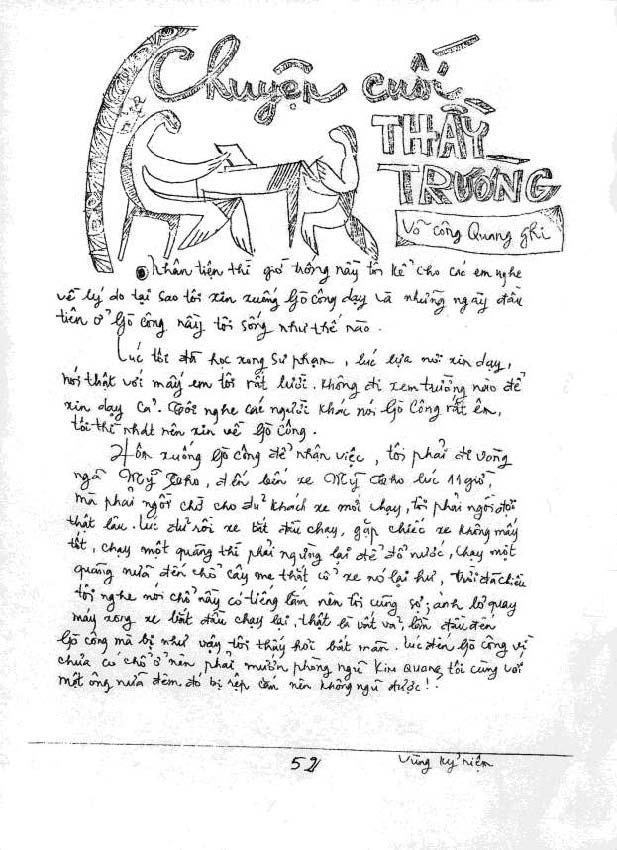 Chuyện cười
THẦY
TRƯƠNG
Võ Công Quang ghi
Nhân tiện thì giờ trống nầy tôi kể cho các em nghe
về lý do tại sao tôi xin xuống Gò Công dạy và những ngày đầu
tiên ở Gò Công nầy tôi sống như thế nào.
Lúc tôi đã học xong Sư phạm, lúc lựa nơi xin dạy,
nói thật với mấy em tôi rất lười. Không đi xem trường nào để
xin dạy cả. Tôi nghe các người khác nói Gò Công rất êm,
tôi thì nhát nên xin về Gò Công.
Hôm xuống Gò Công để nhận việc, tôi phải đi vòng
ngã Mỹ Tho, đến bến xe Mỹ Tho lúc 11 giờ,
mà phải ngồi chờ cho đủ khách xe mới chạy, tôi phải ngồi đợi
thật lâu. Lúc đủ rồi xe bắt đầu chạy, gặp chiếc xe không mấy
tốt, chạy một quãng thì phải ngưng lại để đổ nước, chạy một
quãng nữa đến chỗ cây me thắt cổ xe nó lại hư, trời đã chiều
tôi nghe nói chỗ nầy có tiếng lắm nên tôi cũng sợ; ảnh lơ quay
máy xong xe bắt đầu chạy lại. thật là vất vả, lần đầu đến
Gò Công mà bị như vậy tôi thấy hơi bất mãn. Lúc đến Gò Công vì
chưa có chỗ ở nên phải mướn phòng ngủ Kim Quang, tôi cùng với
một ông nữa đêm đó bị rệp cắn nên không ngủ được!.
52
Vùng kỷ niệm